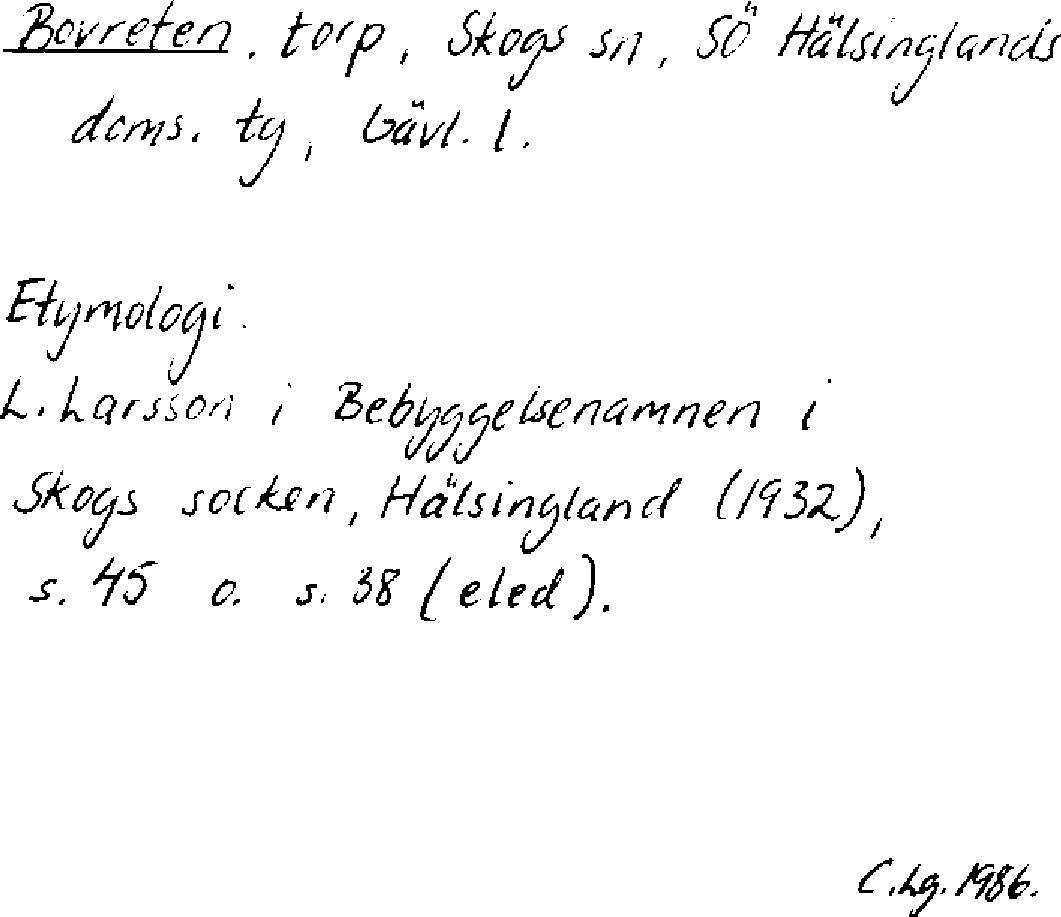 Bovreten, torp, Skogs sn, SÖ Hälsinglands
doms. ty, Gävl. l.
Etymologi.
L. Larsson i Bebyggelsenamnen i
Skogs socken, Hälsingland (1932),
s. 45 o. s. 38 (eled).
C. Lg. 1986.